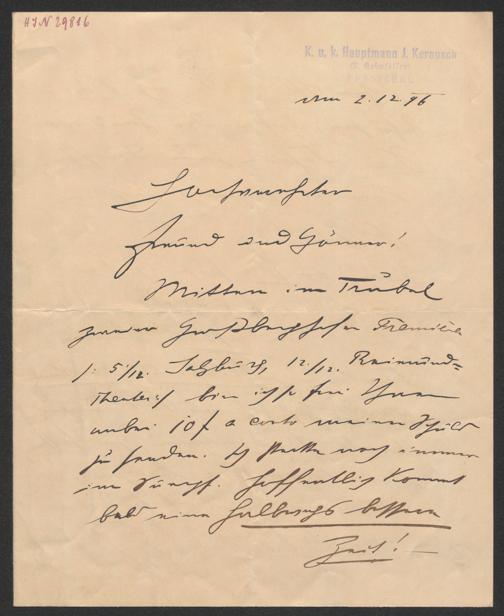 HIN 29816
K. u. k. Hauptmann J. Kernusch
Am 2.12.96
Hochverehrter
Freund und Gönner!
Mitten im Trubel
zweier Großberghofer Première
/: 5/12. Salzburg, 12./12. Raimund-
theater :/ bin ich so frei Ihnen
anbei 10 f a conto meiner Schuld
zu senden. Ich stecke noch immer
im Sumpf. Hoffentlich kommt
bald eine halbwegs bessere
Zeit! —